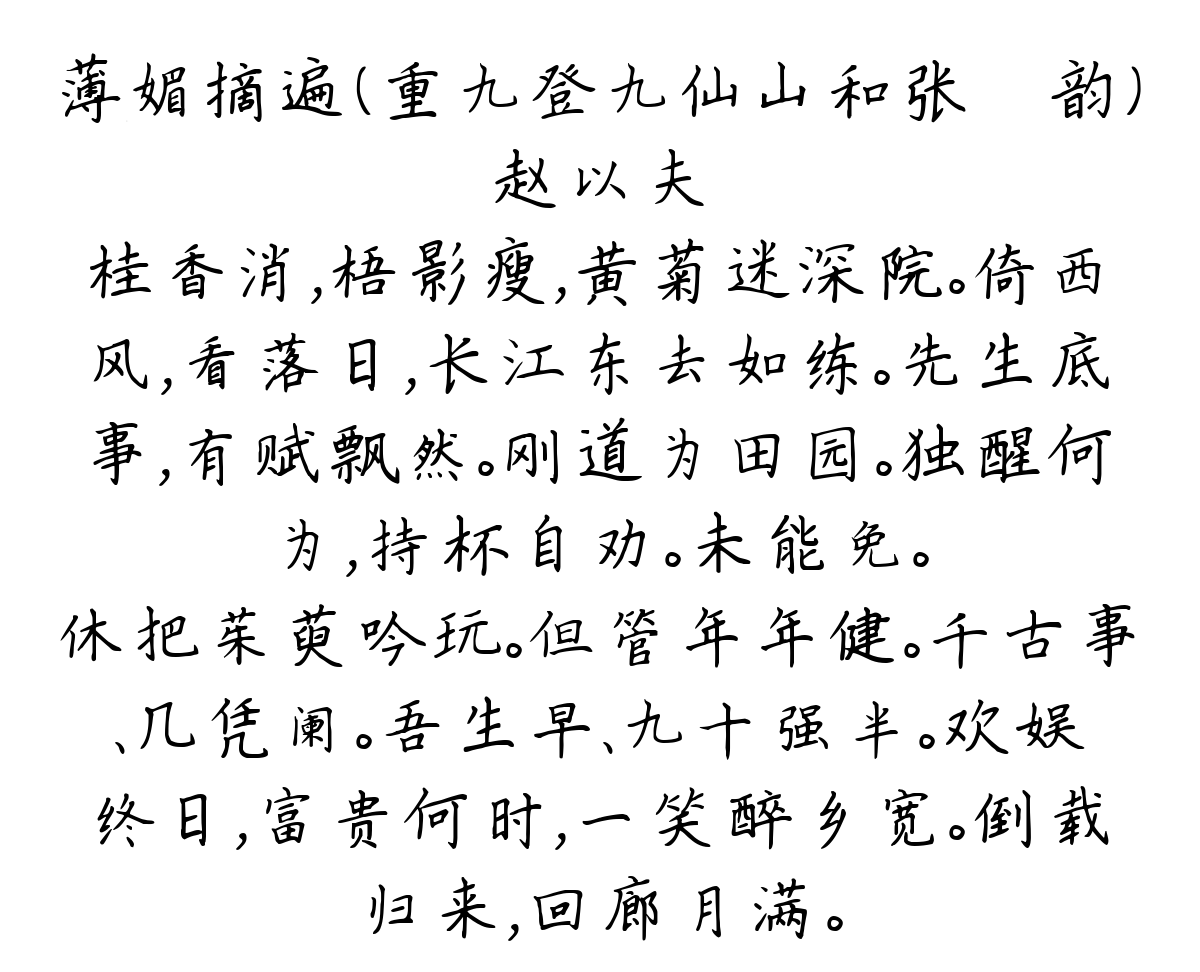 薄媚摘遍(重九登九仙山和张 韵)
赵以夫
桂香消,梧影瘦,黄菊迷深院。倚西
风,看落日,长江东去如练。先生底
事,有赋飘然。刚道为田园。独醒何
为,持杯自劝。未能免。
休把茱萸吟玩。但管年年健。千古事
、几凭阑。吾生早、九十强半。欢娱
终日,富贵何时,一笑醉乡宽。倒载
归来,回廊月满。